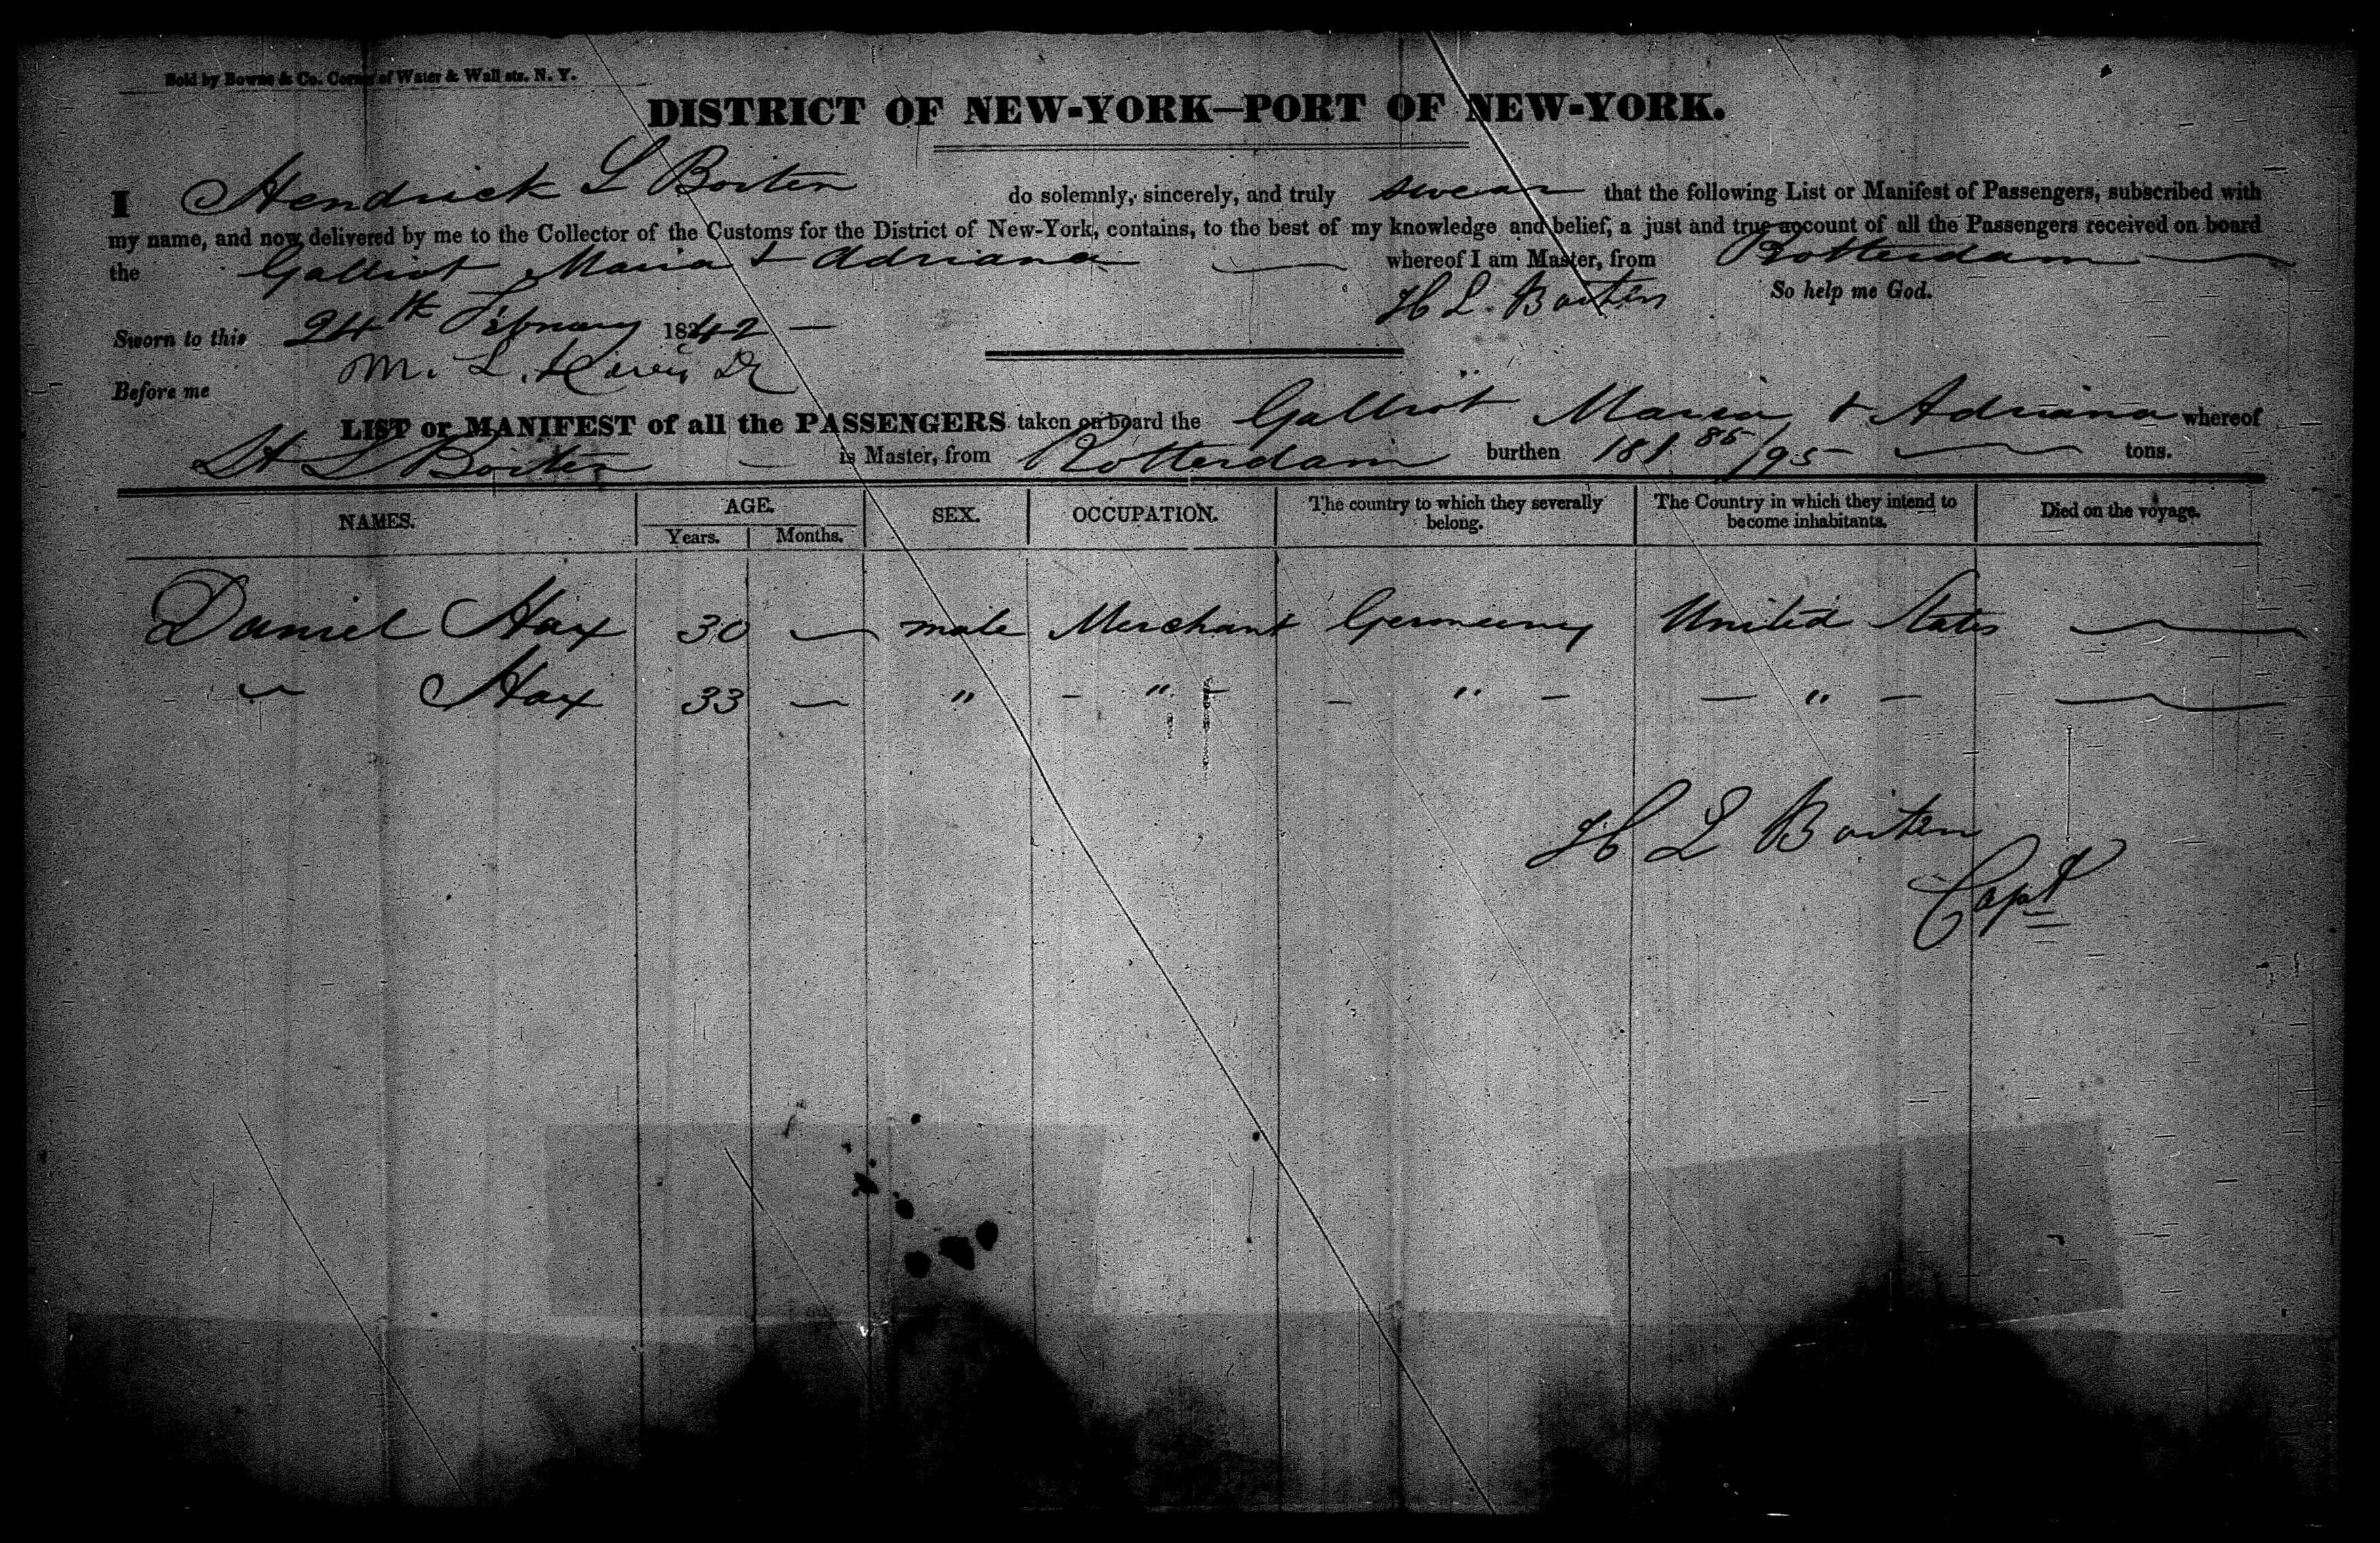 Sold by Bowne & Co. Corner of Water & Wall sts. N. Y.
DISTRICT OF NEW-YORK—PORT OF NEW-YORK.
I Hendrick L Boiten do solemnly, sincerely, and truly swear that the following List or Manifest of Passengers, subscribed with
my name, and now delivered by me to the Collector of the Customs for the District of New-York, contains, to the best of my knowledge and belief, a just and true account of all the Passengers received on board
the Galliot Maria & Adriana whereof I am Master, from Rotterdam
H L Boiten So help me God.
Sworn to this 24th February 1842
Before me M. L.
LIST or MANIFEST of all the PASSENGERS taken on board the Galliot Maria & Adriana whereof
H L Boiten is Master, from Rotterdam burthen 181 85/95 tons.
NAMES. AGE. SEX. OCCUPATION. The country to which they severally belong. The Country in which they intend to become inhabitants. Died on the voyage.
Years. Months.
Daniel Hax 30 — male Merchant Germany United States —
" Hax 33 — " - " - - " - - " - —
H L Boiten
Capt